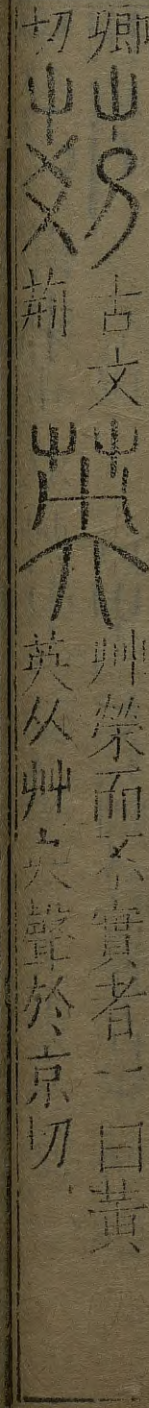 卿
切
古文
荊
英
艸榮而不實者一曰黃
英从艸央聲於京切